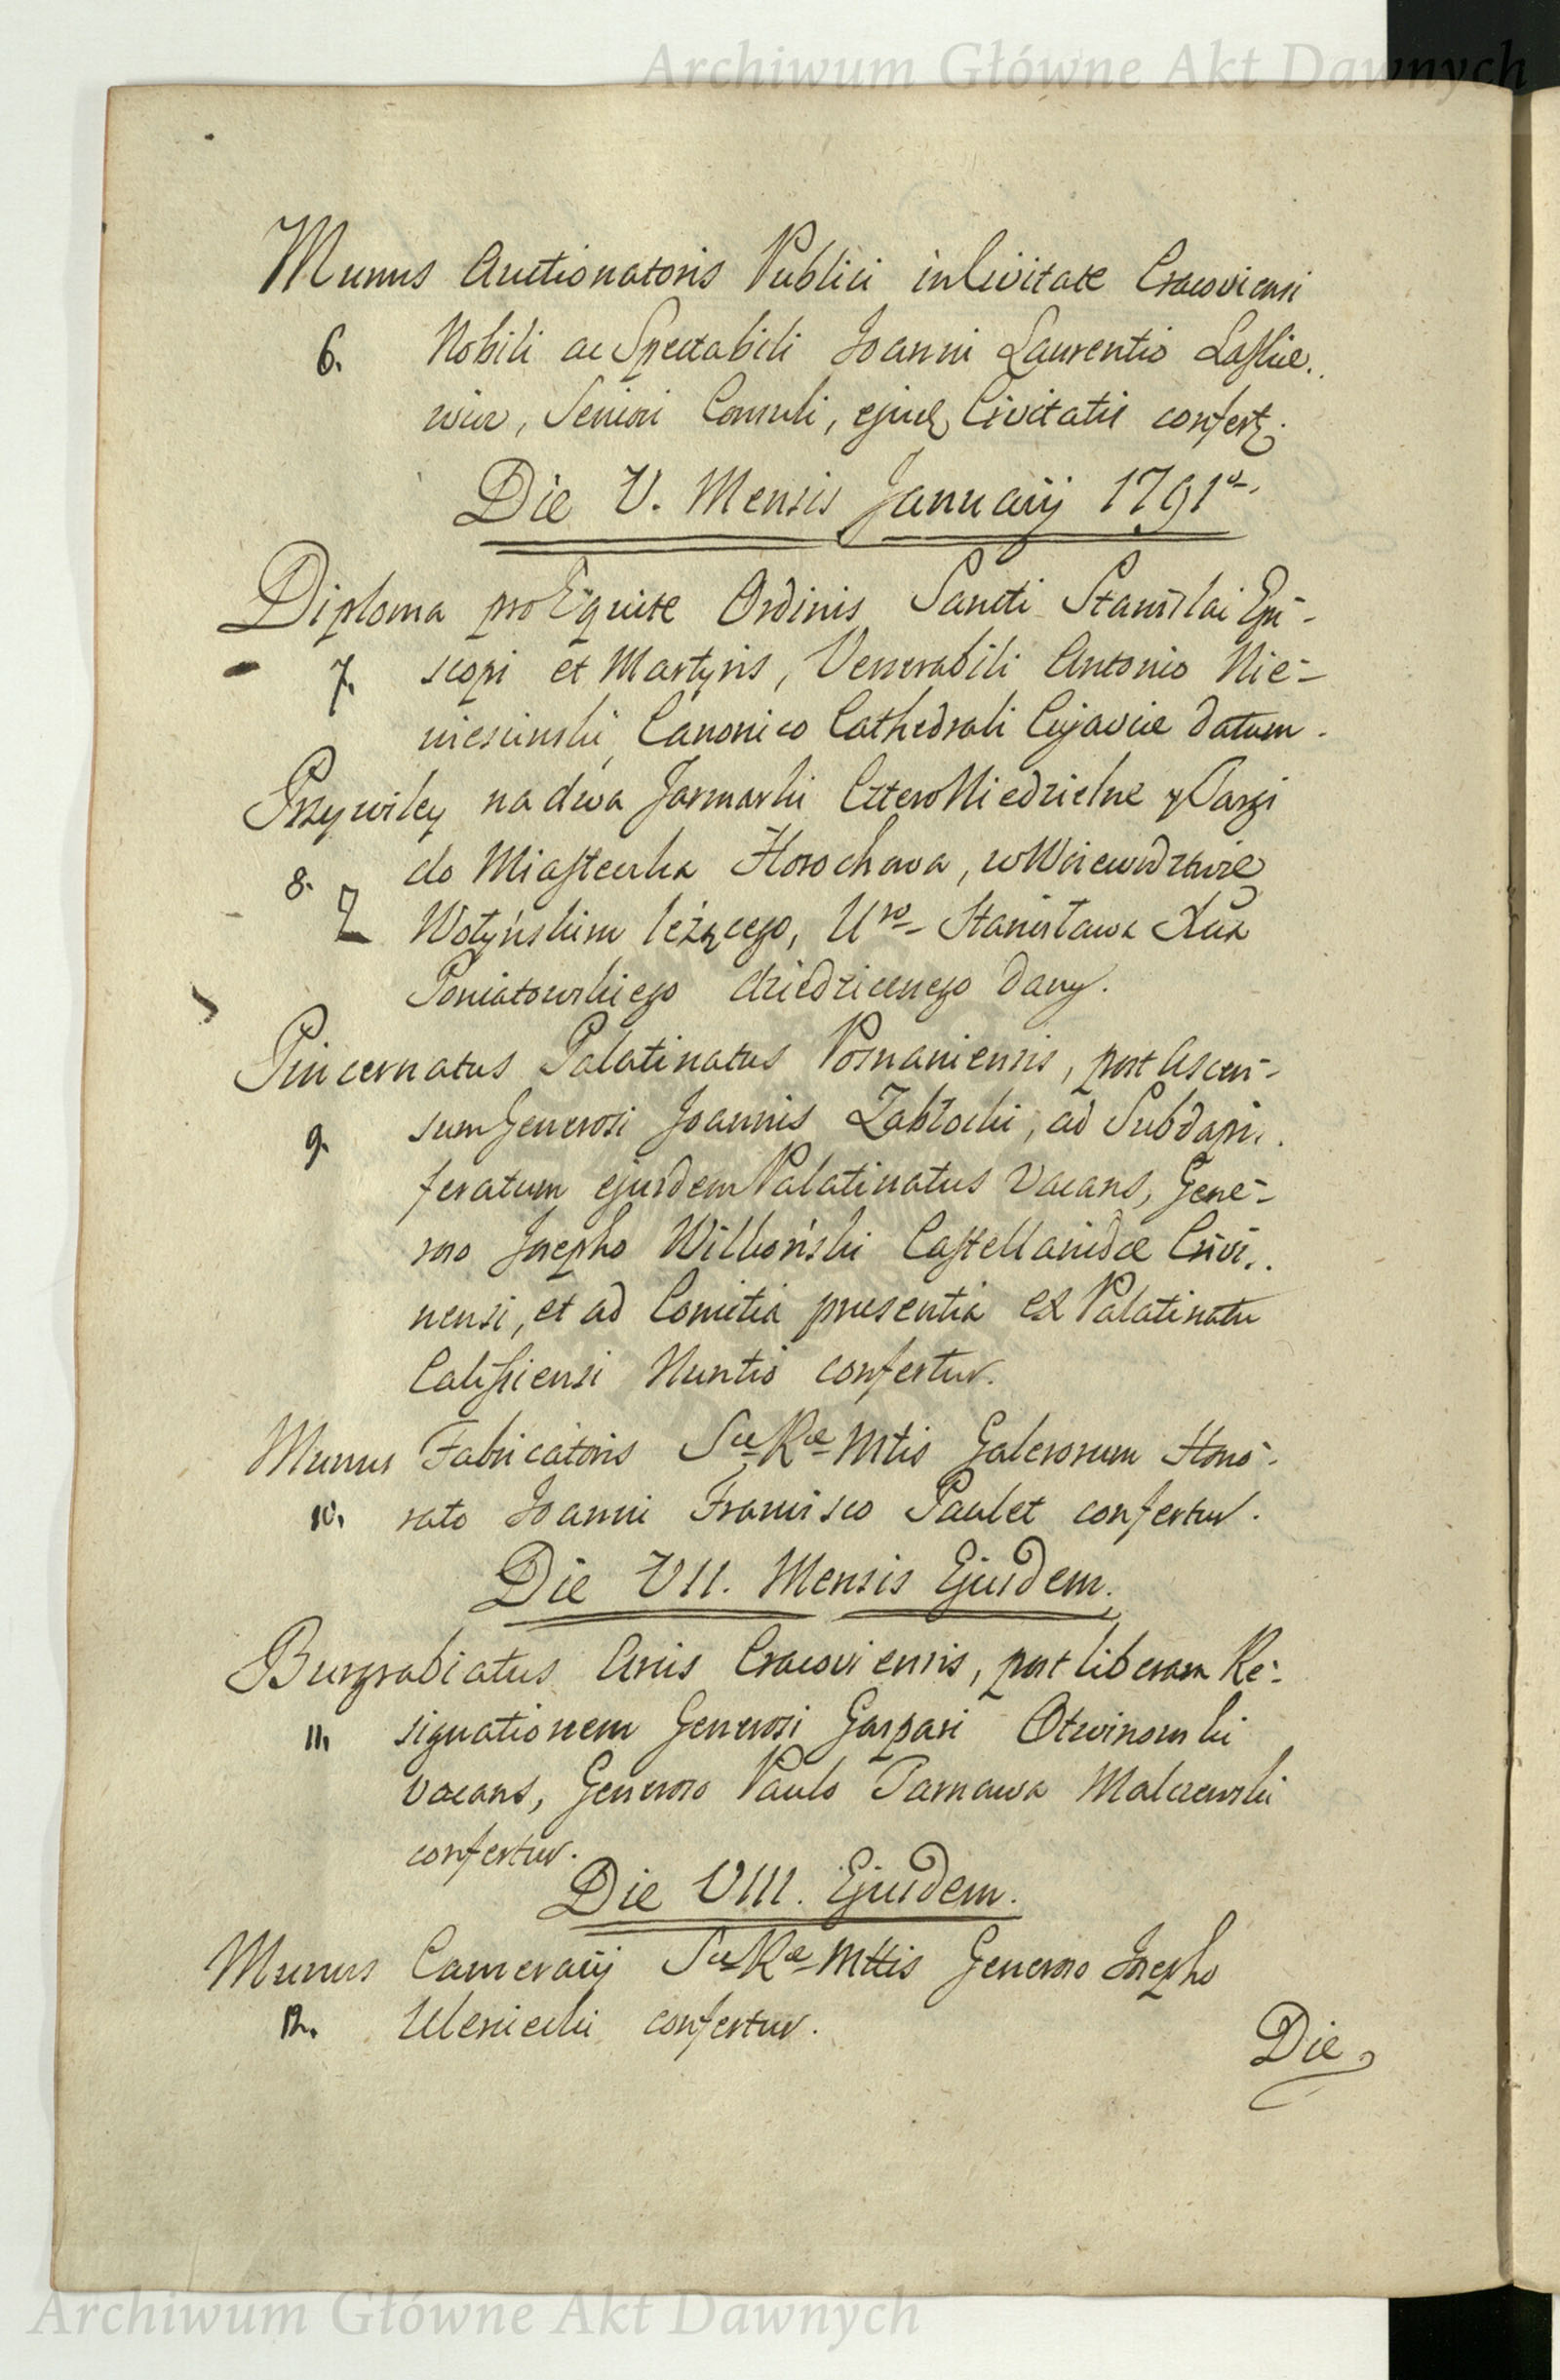 Archiwum Główne Akt Dawnych
Munus Auctionatoris Publici in Civitate Cracoviensi
6. Nobili ac Spectabili Joanni Laurentio Laſkie.
wicz, Seniori Consuli, ejusd Civitatis confert.
Die V. Mensis Januarij 1791.
Diploma pro Equite Ordinis Sancti Stanislai Epi-
7. scopi et Martyris, Venerabili Antonio Nie-
Canonico Cathedrali Cujaviæ datum.
Przywiley na dwa Jarmarki CzteroNiedzielne y Targi
8. do Miaſteczka Horochowa, w Woiewodztwie
Z Wołyńskim leżącego, Uro Stanisława Xcia
Poniatowskiego dziedzicznego dany.
Pincernatus Palatinatus Posnaniensis, post Ascen-
9. sum Generosi Joannis Zabłocki, ad Subdapi.
feratum ejusdem Palatinatus vacans, Gene-
roso Josepho Wilkoński Caſtellanidæ Crivi.
nensi, et ad Comitia presentia ex Palatinatu
Caliſsiensi Nuntio confertur.
Munus Fabricatoris Sæ Ræ Mtis Galerorum Hono-
10. rato Joanni Francisco Paulet confertur.
Die VII. Mensis Ejusdem.
Burgrabiatus Arcis Cracoviensis, post liberam Re-
11. signationem Generosi Gaspari Otwinowski
vacans, Generoso Paulo Tarnawa Malczewski
confertur.
Die VIII. Ejusdem.
Munus Camerarij Sæ Ræ Mttis Generoso Josepho
12. Uleniecki confertur.
Die
Archiwum Główne Akt Dawnych